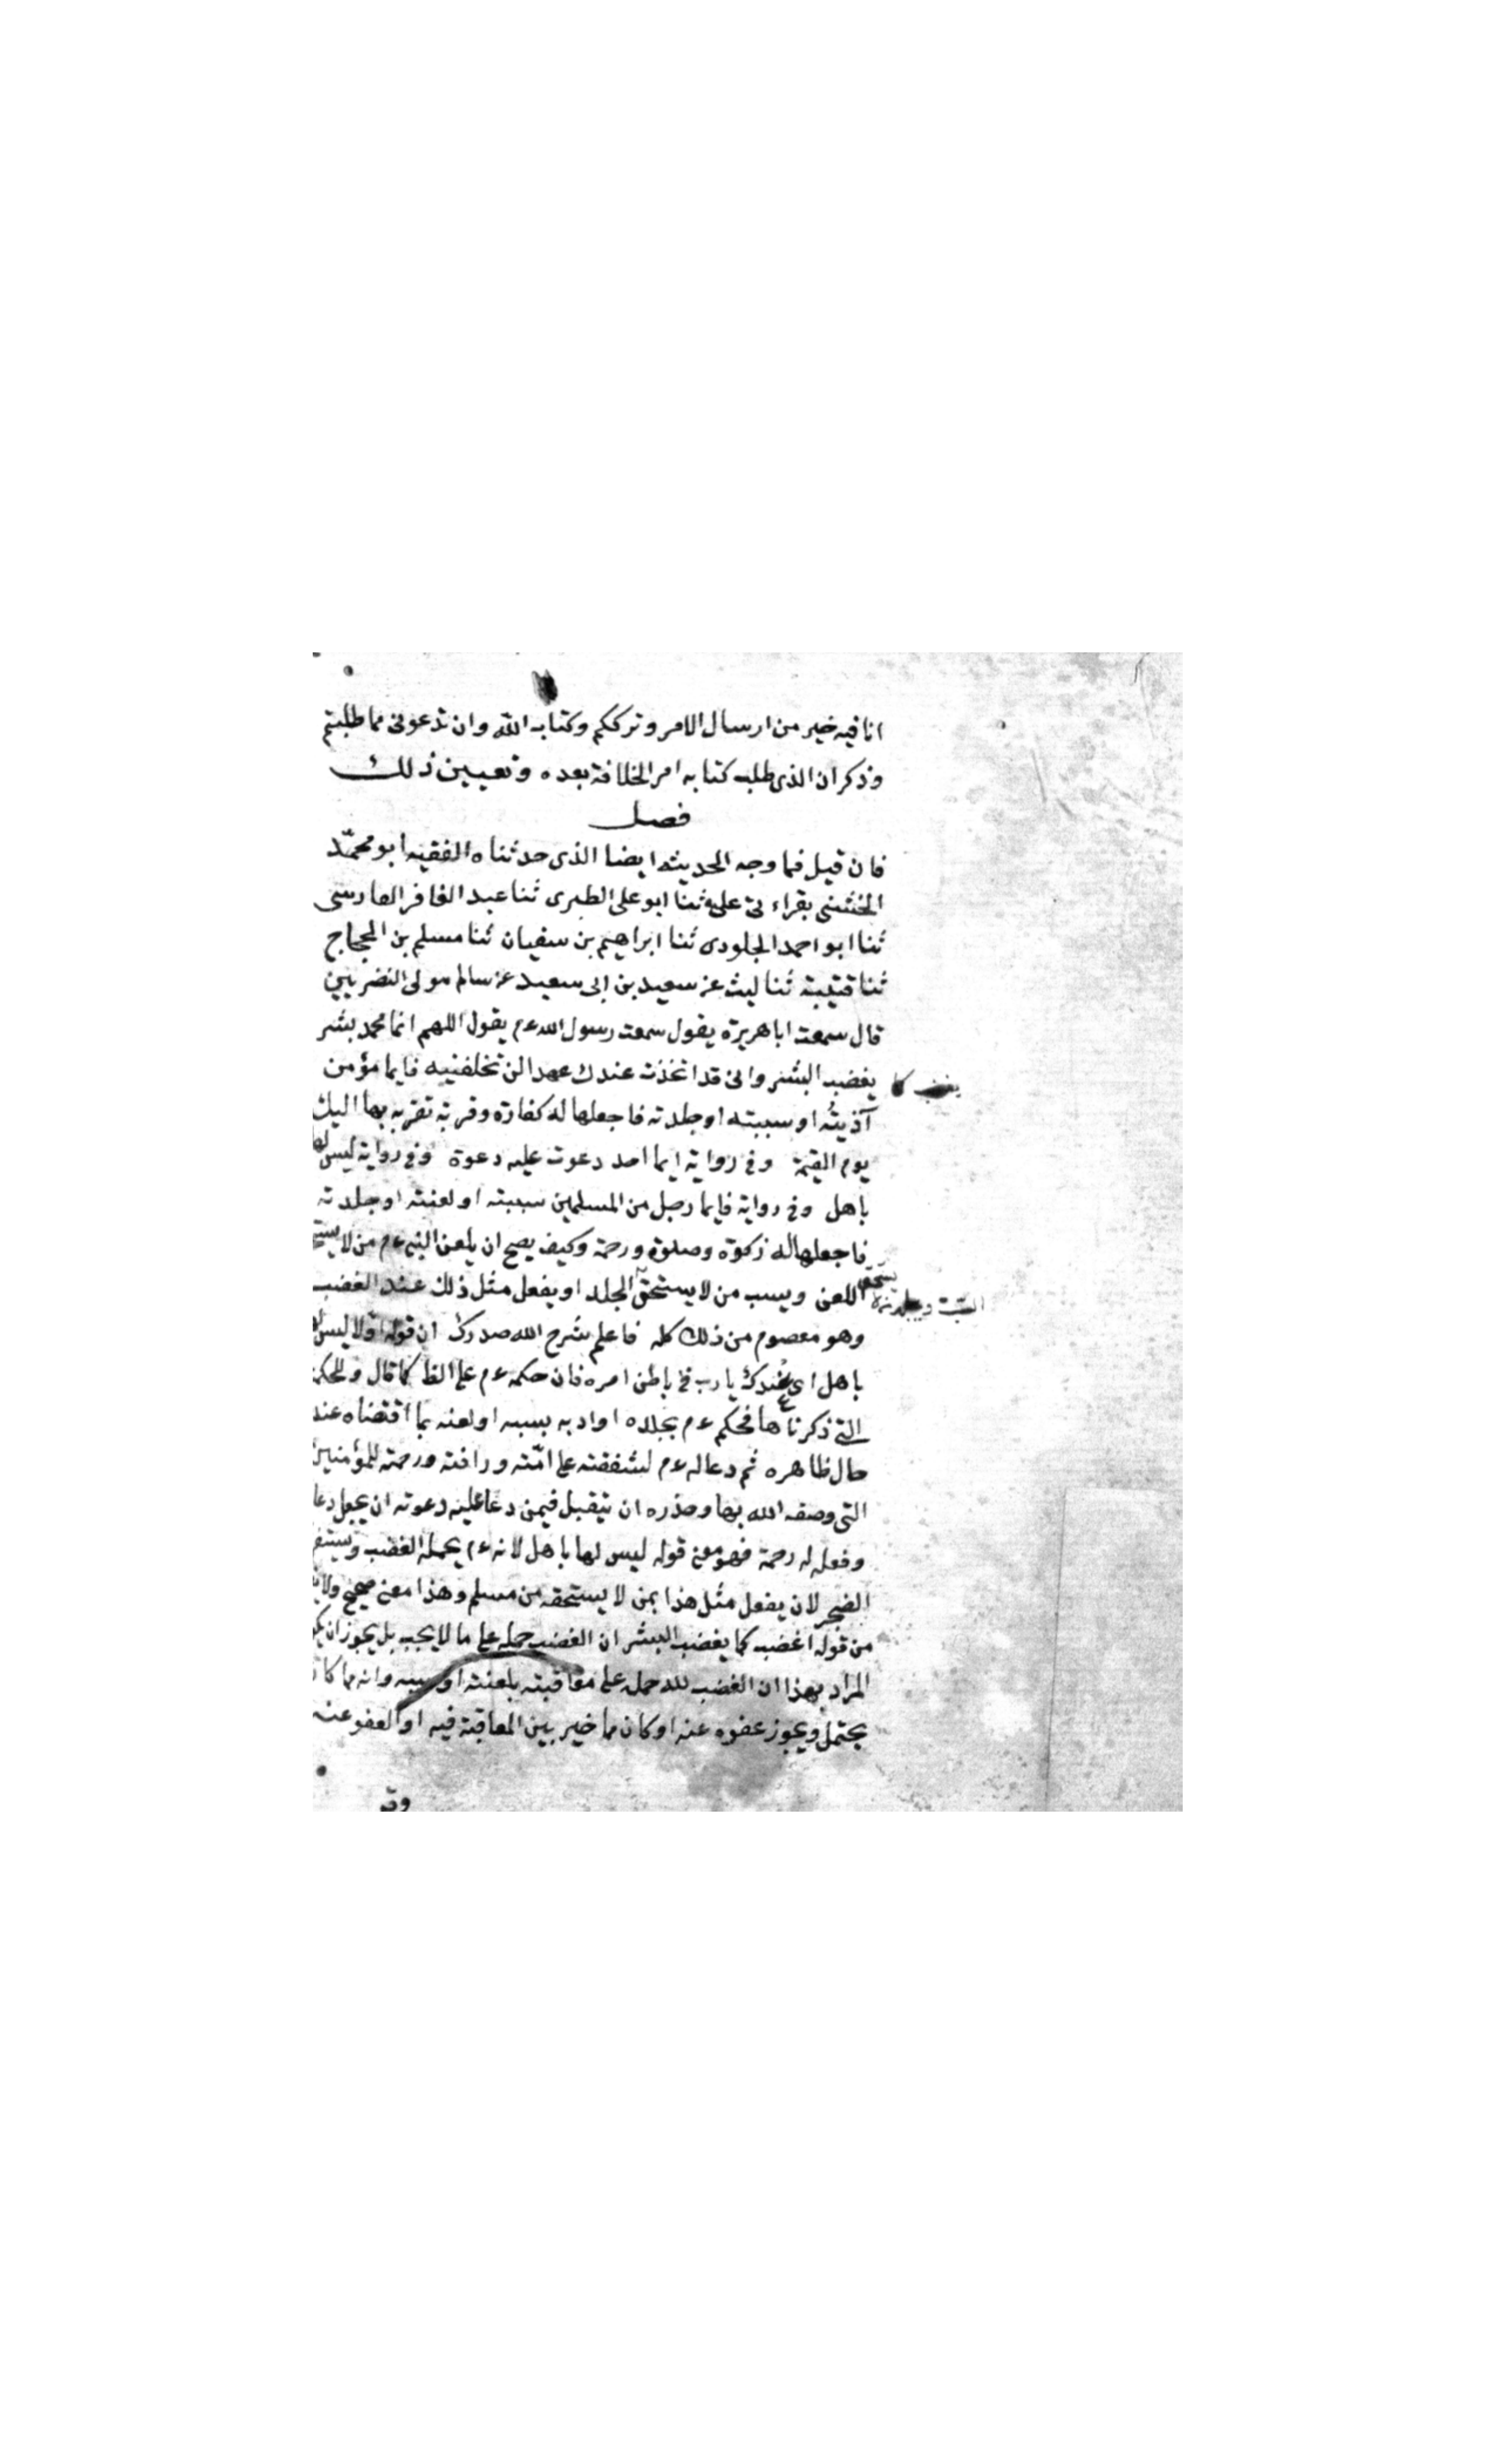 انا فيه خير من ارسال الامر وترككم وكتاب الله وان تدعونى مما طلبتم
وذكر ان الذى طلب كتابه امر الخلافة بعده وتعيين ذلك
فصل
فان قيل فما وجه الحديث ايضا الذى حدثناه الفقيه ابو محمّد
الخشنى بقراءتى عليه ثنا ابو على الطبرى ثنا عبد الغافر الفارسى
ثنا ابو احمد الجلودى ثنا ابراهيم بن سفيان ثنا مسلم بن الحجاج
ثنا قتيبة ثنا ليث عن سعيد بن ابى سعيد عن سالم مولى النضريين
قال سمعت ابا هريرة يقول سمعت رسول الله عم يقول اللهم انما محمد بشر
يغضب كما
يغضب البشر وانى قد اتخذت عندك عهدا لن تخلفنيه فايما مؤمن
آذيته او سببته او جلدته فاجعلها له كفارة وقربة تقربه بها اليك
يوم القيمة وفى رواية ايما احد دعوت عليه دعوة وفى رواية ليس لها
باهل وفى رواية فايما رجل من المسلمين سببته او لعنته او جلدته
فاجعلها له زكوة وصلوة ورحمة وكيف يصح ان يلعن النبى عم من لا
اللعن ويسب من لا يستحق الجلد او يفعل مثل ذلك عند الغضب
يستحق السبّ ويجلد من لا
وهو معصوم من ذلك كله فاعلم شرح الله صدرك ان قوله اولا ليس لها
باهل اى عندك يا رب فى باطن امره فان حكمه عم على الظا كما قال وللحكمة
التى ذكرناها فحكم عم بجلده او ادبه بسبه او لعنه بما اقتضاه عند
حال ظاهره ثم دعا له عم لشفقته على امّته ورافته ورحمته للمؤمنين
التى وصفه الله بها وحذره ان يتقبل فيمن دعا عليه دعوته ان يجعل دعا
وفعله له رحمة فهو معنى قوله ليس لها باهل لا انه عم يحمله الغضب
الضجر لان يفعل مثل هذا بمن لا يستحقه من مسلم وهذا معنى صحيح ولا
من قوله اغضب كما يغضب البشر ان الغضب حمله على ما لا يجب بل يجوز ان
المراد بهذا ان الغضب لله حمله على معاقبته بلعنته او سبه وانه مما كان
يحتمل ويجوز عفوه عنه او كان مما خير بين المعاقبة فيه او العفو عنه